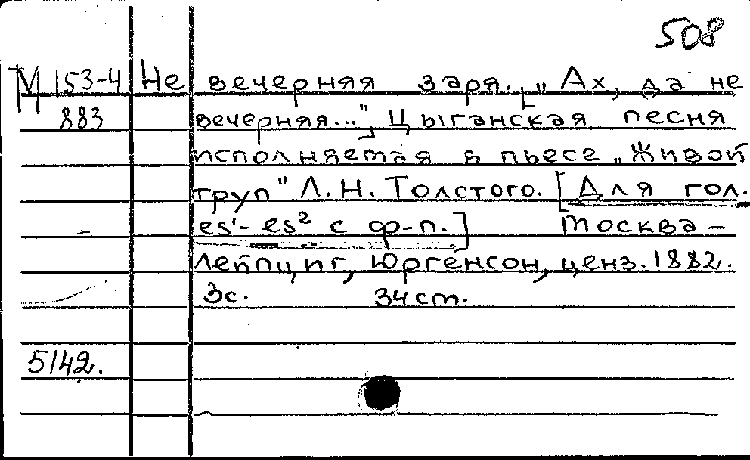 508
М 153-4 Не вечерняя заря. „Ах, да не
883 вечерняя...", Цыганская песня
исполняемая в пьесе „Живой
труп" Л.Н. Толстого. [Для гол.
es¹- es² с ф-п.] Москва-
Лейпциг, Юргенсон, ценз. 1882.
3с. 34ст.
5142.